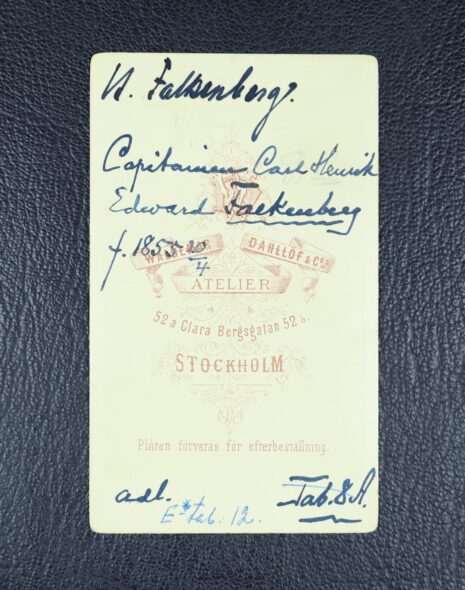 Falkenberg.
Capitainen Carl Henrik
Edward Falkenberg
f. 1855 20/4
DAHLLÖF & Co.
ATELIER
52 a Clara Bergsgatan 52 a.
STOCKHOLM
Plåten förvaras för efterbeställning.
adl. Tab. 8 A.
tab. 12.